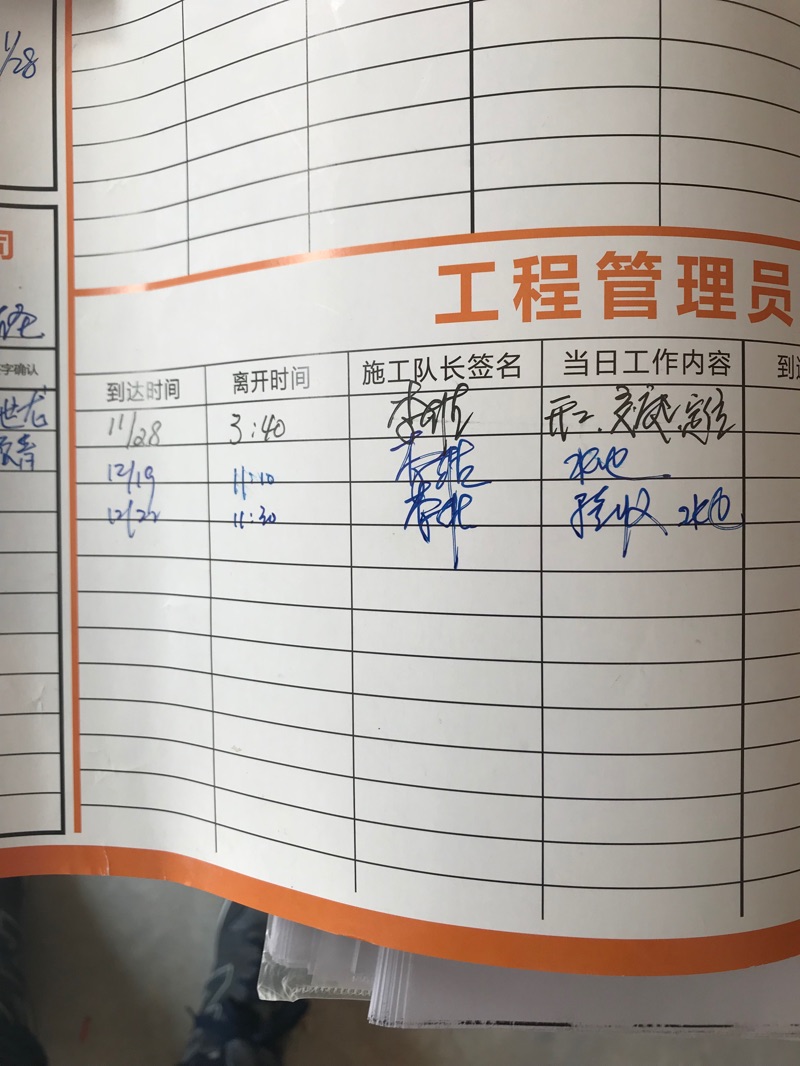 1/28
司
工程管理员
字确认
到达时间 离开时间 施工队长签名 当日工作内容 到达
11/28 3:40 开工、交底、定位
12/19 11:10 水电
12/22 11:30 验收 水电